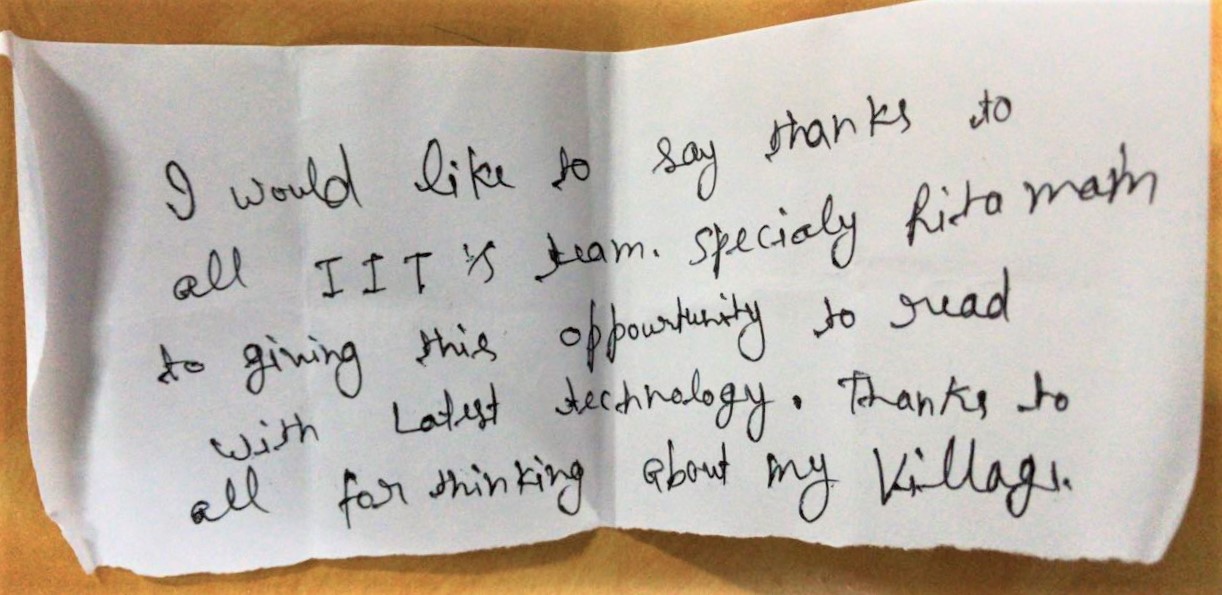 I would like to say thanks to
all IIT's team. specialy Rita mam
to giving this oppourtunity to read
with Latest technology. Thanks to
all for thinking about my Village.